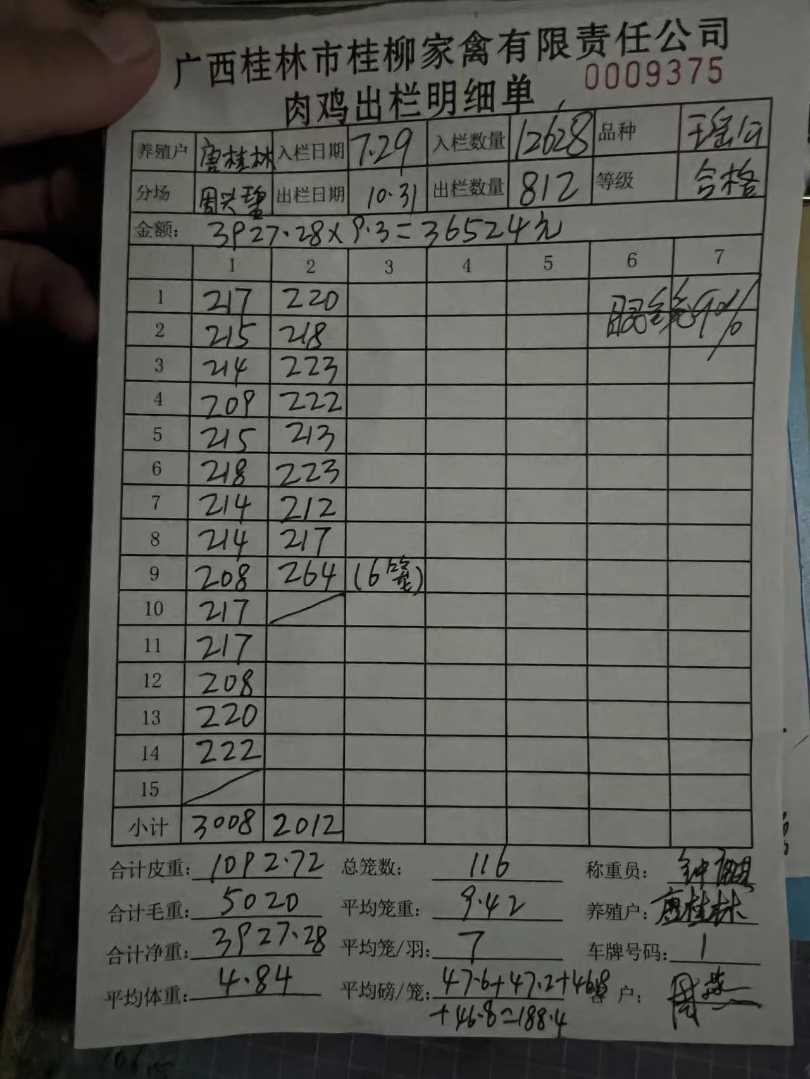 广西桂林市桂柳家禽有限责任公司
肉鸡出栏明细单 0009375
养殖户 唐桂林 入栏日期 7.29 入栏数量 12628 品种
分场 出栏日期 10.31 出栏数量 812 等级 合格
金额: 3927.28×9.3=36524元
1 2 3 4 5 6 7
1 217 220
2 215 218
3 214 223
4 209 222
5 215 213
6 218 223
7 214 212
8 214 217
9 208 264 (6笼)
10 217
11 217
12 208
13 220
14 222
15
小计 3008 2012
合计皮重: 1092.72 总笼数: 116 称重员:
合计毛重: 5020 平均笼重: 9.42 养殖户: 唐桂林
合计净重: 3927.28 平均笼/羽: 7 车牌号码: 1
平均体重: 4.84 平均磅/笼: 47.6+47.2+46.8 客户:
+46.8=188.4